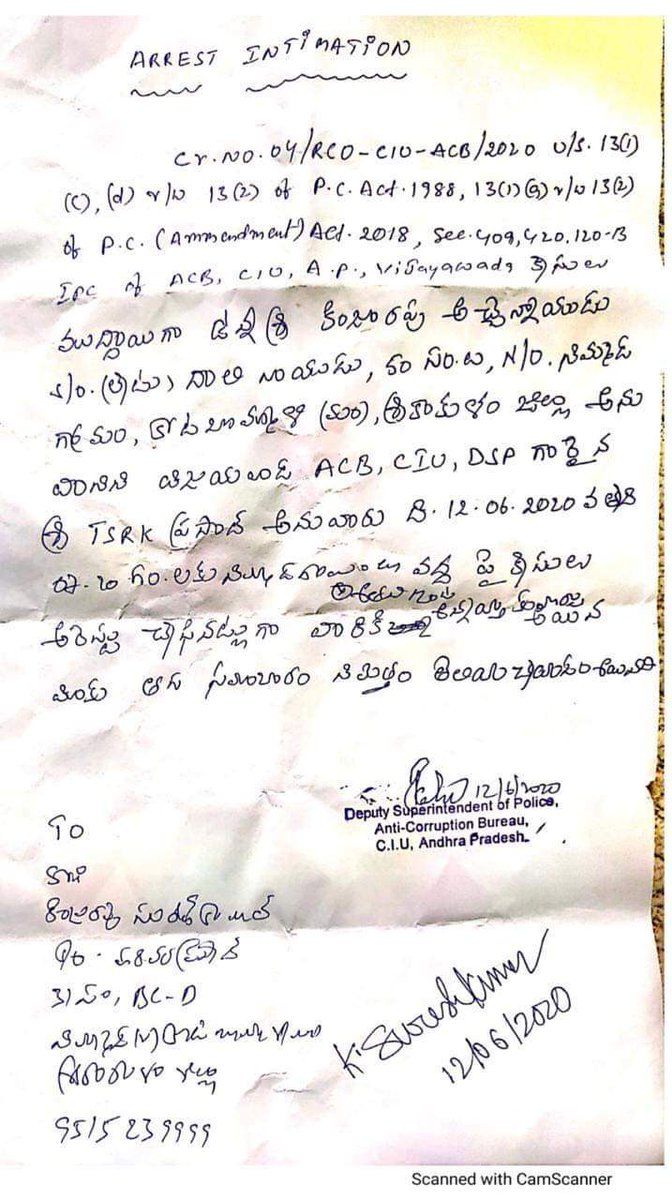 ARREST INTIMATION
Cr. NO. 04/RCO-CIU-ACB/2020 U/s. 13(1)
(c), (d) r/w 13(2) of P.C. Act. 1988, 13(1)(a) r/w 13(2)
of P.C. (Ammendment) Act. 2018, Sec. 409, 420, 120-B
IPC of ACB, CIU, A.P., Vijayawada కేసులు
ముద్దాయిగా ఉన్న శ్రీ కింజరాపు అచ్చెన్నాయుడు
S/o. (లేటు) దాలి నాయుడు, సం.లు, N/o. నిమ్మాడ
గ్రామం, కోటబొమ్మాళి (మం), శ్రీకాకుళం జిల్లా అను
వానిని విజయవాడ ACB, CIU, DSP గారైన
శ్రీ TSRK ప్రసాద్ అనువారు ది. 12.06.2020 వ తేది
గం.లకు నిమ్మాడ గ్రామం వద్ద పై కేసులు
అరెస్టు చేసినట్లుగా వారికి అయిన
మీకు సమాచారం నిమిత్తం తెలియచేయడం అయినది
12/6/2020
Deputy Superintendent of Police,
Anti-Corruption Bureau,
C.I.U, Andhra Pradesh.
To
కింజరాపు
హరివరప్రసాద్
31 సం, BC-D
K. Suresh Kumar
12/06/2020
9515239999
Scanned with CamScanner